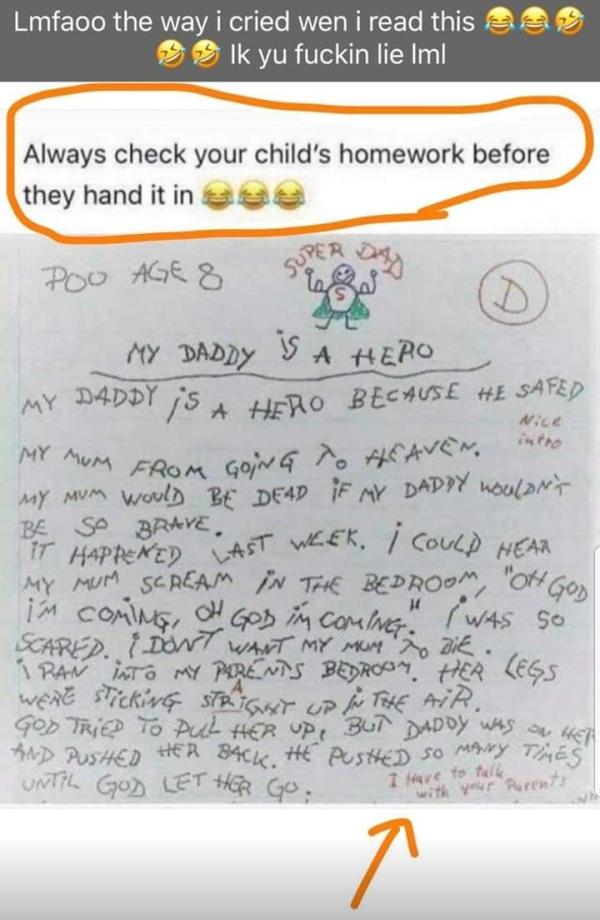 Lmfaoo the way i cried wen i read this 😂😂🤣
🤣🤣 Ik yu fuckin lie lml
Always check your child's homework before
they hand it in 😂😂😂
SUPER DAD
POO AGE 8
S
D
MY DADDY iS A HERO
MY DADDY iS A HERO BECAUSE HE SAFED
Nice
intro
MY MUM FROM GOiNG TO HEAVEN.
MY MUM WOULD BE DEAD iF MY DADDY WOULDN'T
BE SO BRAVE.
iT HAPPENED LAST WEEK. i COULD HEAR
MY MUM SCREAM iN THE BEDROOM, "OH GOD
i'M COMiNG, OH GOD iM COMiNG." i WAS SO
SCARED. i DON'T WANT MY MUM TO DiE.
i RAN iNTO MY PARENTS BEDROOM. HER LEGS
A
WERE STiCKiNG STRiGHT UP iN THE AiR.
GOD TRiED TO PULL HER UP, BUT DADDY WAS ON HER
AND PUSHED HER BACK. HE PUSHED SO MANY TiMES
UNTiL GOD LET HER GO.
I Have to talk
with your Parents